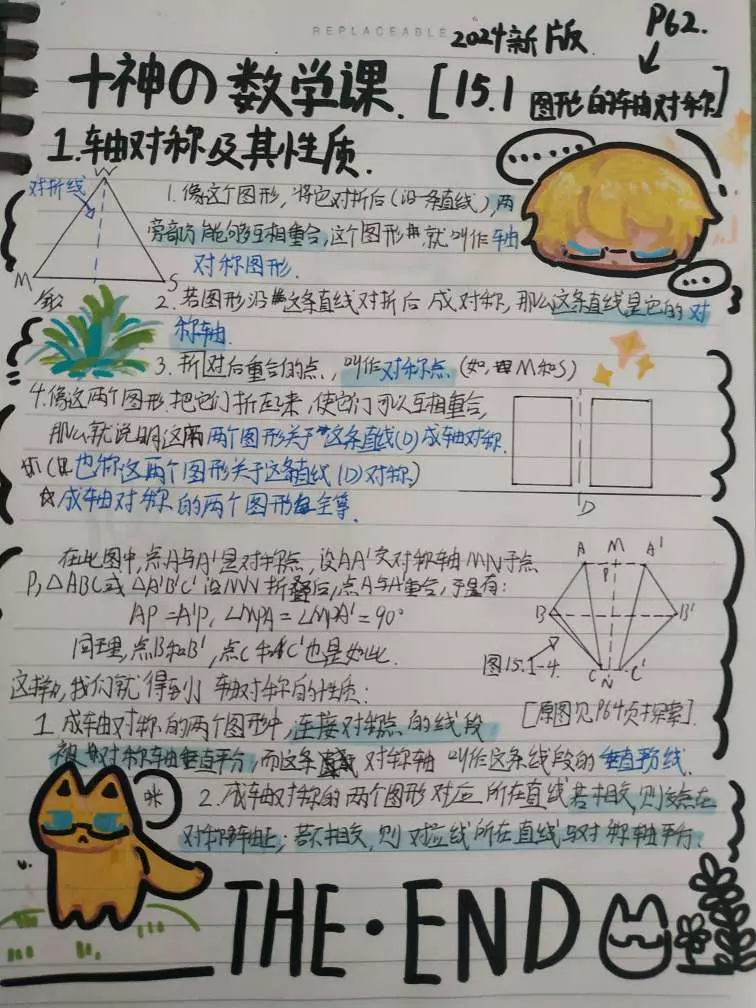 REPLACEABLE
2024新版
P62.
十神の数学课.[15.1 图形的轴对称]
1.轴对称及其性质.
对折线
W
M
S
1.像这个图形,将它对折后(沿一条直线),两
旁部分能够互相重合,这个图形就叫作轴
对称图形.
2.若图形沿这条直线对折后成对称,那么这条直线是它的对
称轴.
3.折对后重合的点,叫作对称点(如,M和S)
4.像这两个图形.把它们折起来,使它们可以互相重合,
那么就说明这两个图形关于这条直线(D)成轴对称.
(也称这两个图形关于这条直线(D)对称)
☆成轴对称的两个图形全等.
D
在此图中,点A与A'是对称点,设AA'交对称轴MN于点
P,△ABC或△A'B'C'沿MN折叠后,点A与A'重合,于是有:
AP=A'P,∠MPA=∠MPA'=90°
同理,点B和B',点C和C'也是如此.
A M A'
P
B B'
C N C'
图15.1-4.
[原图见P64页探索].
这样,我们就得到轴对称的性质:
1.成轴对称的两个图形中,连接对称点的线段
被对称轴垂直平分,而这条对称轴叫作这条线段的垂直平分线.
咪
2.成轴对称的两个图形对应所在直线若相交,则交点在
对称轴上;若不相交,则对应线所在直线与对称轴平行.
THE·END